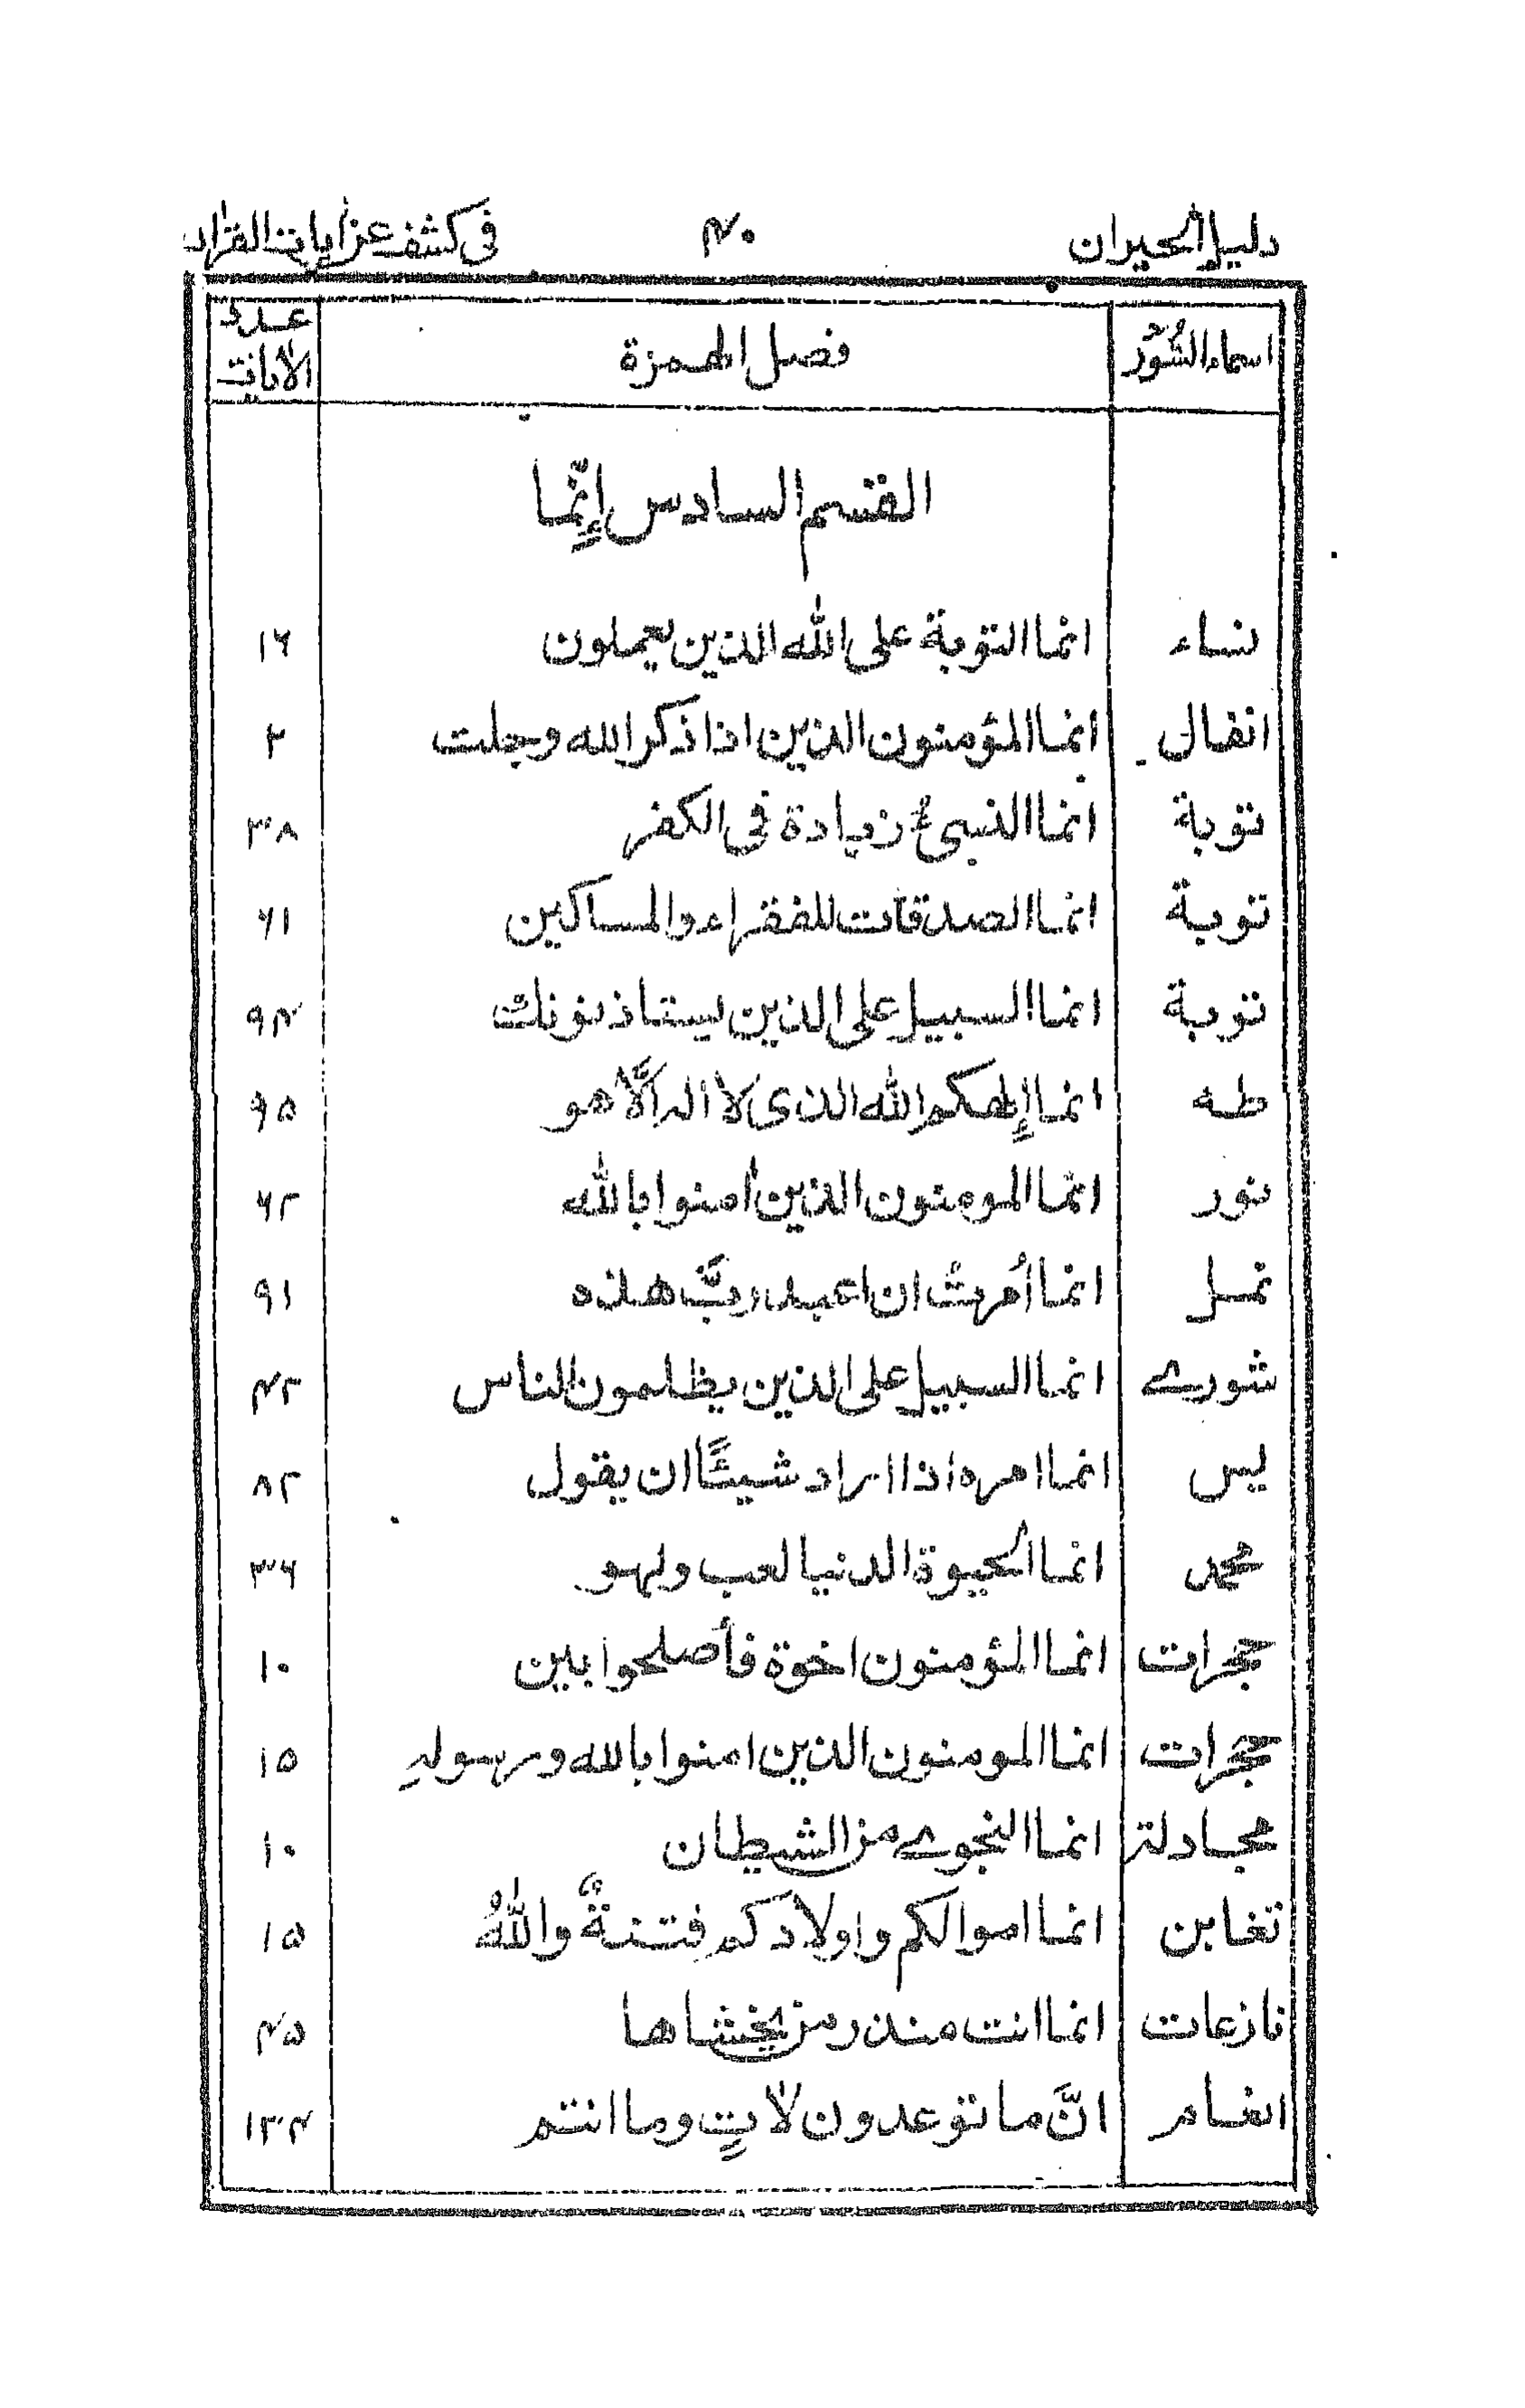 دليل الحيران ۴۰ فی كشف عن اٰيات القراٰن
اسماء السُّوَر فصل الهمزة عدد الاٰيات
القسم السادس إِنّما
نساء انما التوبة على الله الذين يعملون ۱۶
انفال انما المؤمنون الذين اذا ذكر الله وجلت ۲
توبة انما النسیء زيادة فی الكفر ۳۸
توبة انما الصدقات للفقراء والمساكين ۶۱
توبة انما السبيل على الذين يستاذنونك ۹۴
طه انما إِلٰهكم الله الذی لا اله الَّا هو ۹۵
نور انما المومنون الذين اٰمنوا بالله ۶۲
نمل انما أُمرتُ ان اعبد ربَّ هذه ۹۱
شورے انما السبيل على الذين يظلمون الناس ۴۲
يس انما امره اذا اراد شيئًا ان يقول ۸۲
محمد انما الحيوة الدنيا لعب ولهو ۳۶
حجرات انما المؤمنون اخوة فأصلحوا بين ۱۰
حجرات انما المومنون الذين امنوا بالله ورسولهِ ۱۵
مجادلة انما النجوے من الشيطان ۱۰
تغابن انما اموالكم واولادكم فتنةٌ واللهُ ۱۵
نازعات انما انت منذر من يخشاها ۴۵
انعام انَّ ما توعدون لاٰتٍ وما انتم ۱۳۴